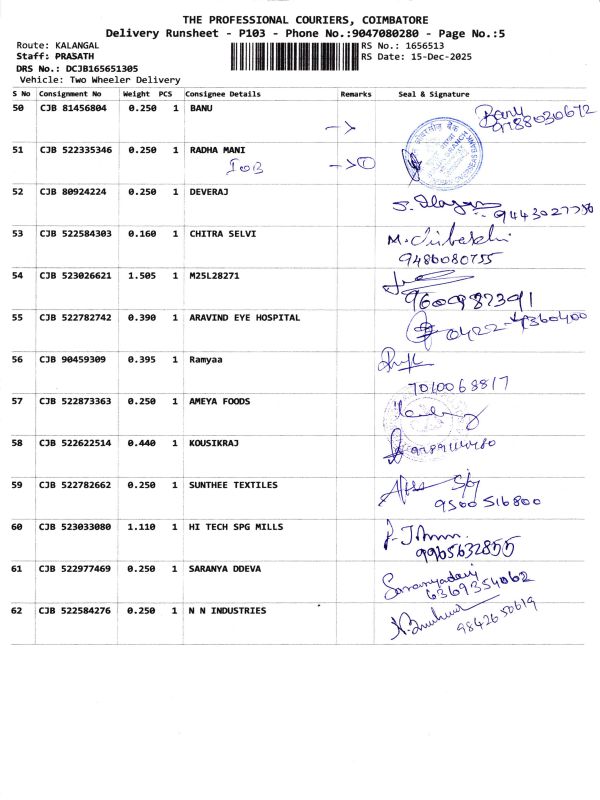 THE PROFESSIONAL COURIERS, COIMBATORE
Delivery Runsheet - P103 - Phone No.:9047080280 - Page No.:5
Route: KALANGAL
RS No.: 1656513
Staff: PRASATH
RS Date: 15-Dec-2025
DRS No.: DCJB165651305
Vehicle: Two Wheeler Delivery
S No Consignment No Weight PCS Consignee Details Remarks Seal & Signature
50 CJB 81456804 0.250 1 BANU Banu
9788030672
51 CJB 522335346 0.250 1 RADHA MANI
IOB → ①
52 CJB 80924224 0.250 1 DEVERAJ
9443027750
53 CJB 522584303 0.160 1 CHITRA SELVI
9486080755
54 CJB 523026621 1.505 1 M25L28271
9600987391
55 CJB 522782742 0.390 1 ARAVIND EYE HOSPITAL 0422-4360400
56 CJB 90459309 0.395 1 Ramyaa
7010068817
57 CJB 522873363 0.250 1 AMEYA FOODS
58 CJB 522622514 0.440 1 KOUSIKRAJ
59 CJB 522782662 0.250 1 SUNTHEE TEXTILES
9500516800
60 CJB 523033080 1.110 1 HI TECH SPG MILLS
9965632855
61 CJB 522977469 0.250 1 SARANYA DDEVA Saranyadevi
6369354062
62 CJB 522584276 0.250 1 N N INDUSTRIES
9842650619